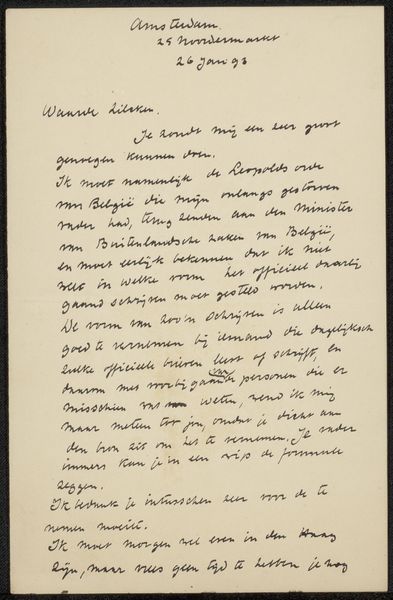 Amsterdam.
29 Noordermarkt
26 Jan 93
Waarde Zilcken.
Je zoudt mij een zeer groot
genoegen kunnen doen.
Ik moet namenlijk de Leopolds orde
van België die mijn onlangs gestorven
vader had, terug zenden aan den Minister
van Buitenlandsche zaken van België,
en moet eerlijk bekennen dat ik niet
weet in welke vorm het officieel daarbij
gaand schrijven moet gesteld worden.
De vorm van zoo'n schrijven is alleen
goed te vernemen bij iemand die dagelijksch
zulke officieele brieven leest of schrijft, en
daarom met voorbij gaan van personen die er
misschien wat weten, wend ik mij
maar meteen tot jou, omdat je dicht aan
den bron zit om het te vernemen. Je vader
immers kan je in een wip de formule
zeggen.
Ik bedank je intusschen zeer voor de te
nemen moeite.
Ik moet morgen wel even in den Haag
zijn, maar vrees geen tijd te hebben je nog